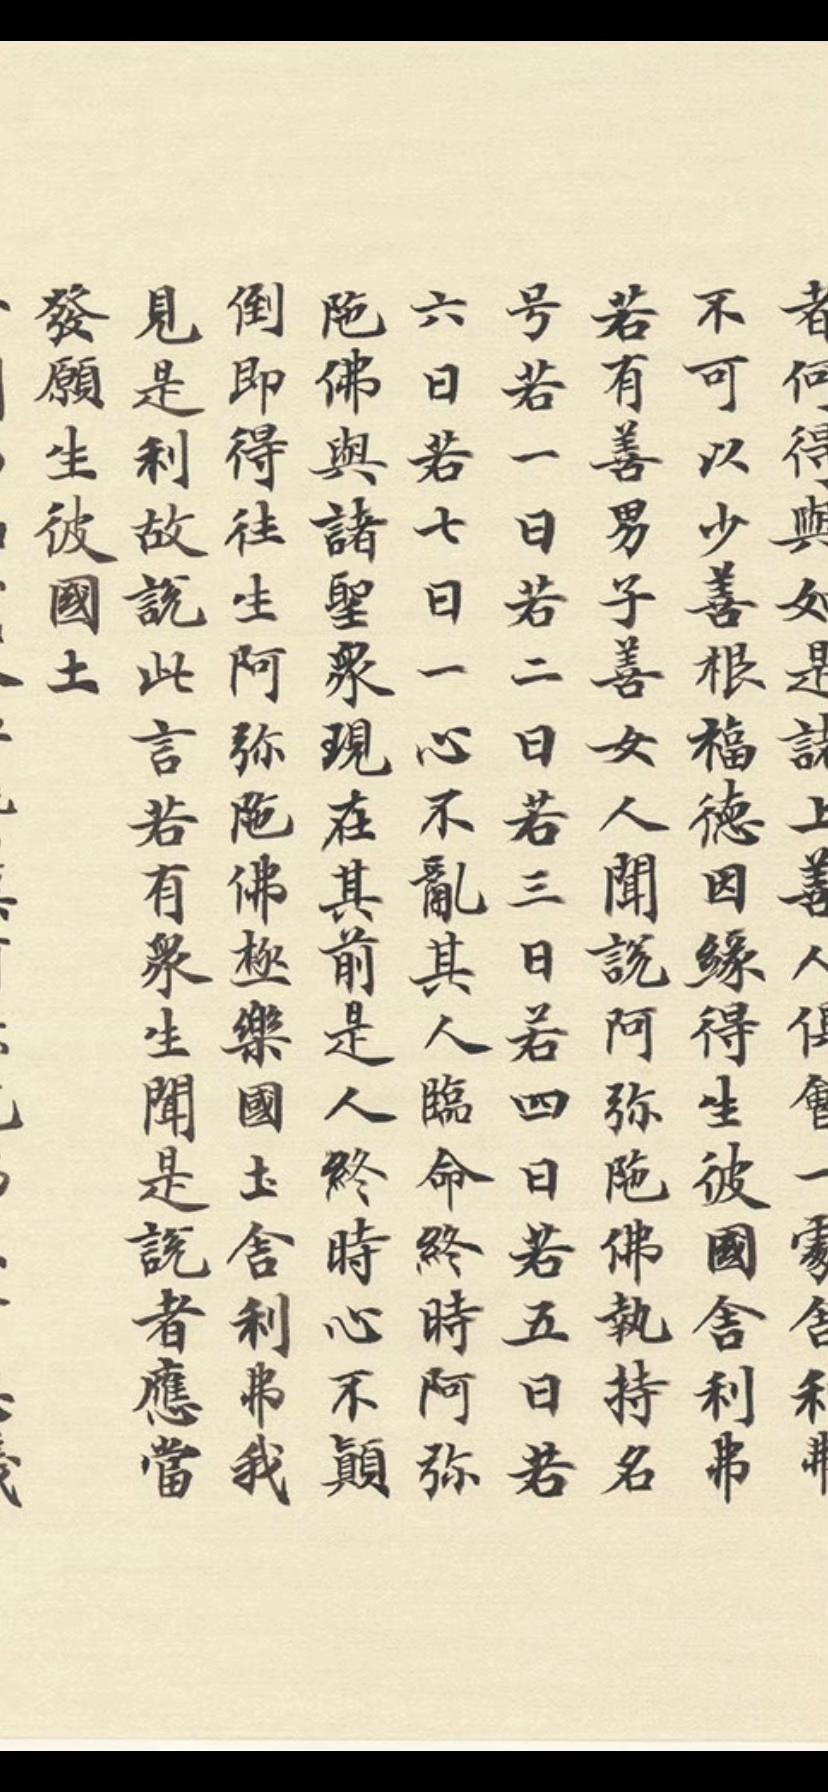 者何得與如是諸上善人俱會一處舍利弗
不可以少善根福德因緣得生彼國舎利弗
若有善男子善女人聞說阿弥陁佛執持名
号若一日若二日若三日若四日若五日若
六日若七日一心不亂其人臨命終時阿弥
陁佛與諸聖衆現在其前是人終時心不顛
倒即得往生阿弥陁佛極樂國土舎利弗我
見是利故說此言若有衆生聞是說者應當
發願生彼國土